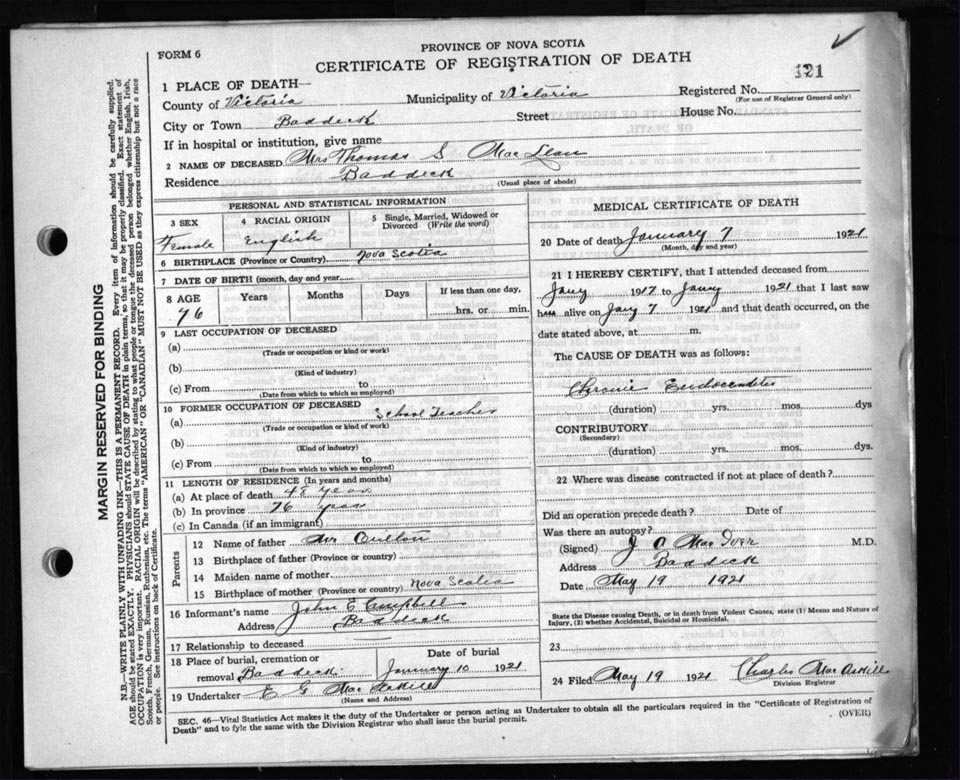 FORM 6
PROVINCE OF NOVA SCOTIA
CERTIFICATE OF REGISTRATION OF DEATH
121
1 PLACE OF DEATH—
County of Victoria Municipality of Victoria Registered No.
(For use of Registrar General only)
City or Town Baddeck Street House No.
If in hospital or institution, give name
2 NAME OF DECEASED Mrs Thomas S MacLean
Residence Baddeck
(Usual place of abode)
PERSONAL AND STATISTICAL INFORMATION
3 SEX Female
4 RACIAL ORIGIN English
5 Single, Married, Widowed or Divorced (Write the word)
6 BIRTHPLACE (Province or Country) Nova Scotia
7 DATE OF BIRTH (month, day and year)
8 AGE Years Months Days If less than one day,
76 hrs. or min.
9 LAST OCCUPATION OF DECEASED
(a)
(Trade or occupation or kind or work)
(b)
(Kind of industry)
(c) From to
(Date from which to which so employed)
10 FORMER OCCUPATION OF DECEASED
(a) School Teacher
(Trade or occupation or kind of work)
(b)
(Kind of industry)
(c) From to
(Date from which to which so employed)
11 LENGTH OF RESIDENCE (In years and months)
(a) At place of death 48 years
(b) In province 76 years
(c) In Canada (if an immigrant)
Parents
12 Name of father Mr
13 Birthplace of father (Province or country)
14 Maiden name of mother
15 Birthplace of mother (Province or country) Nova Scotia
16 Informant's name John E Campbell
Address Baddeck
17 Relationship to deceased
18 Place of burial, cremation or removal Baddeck Date of burial January 10 1921
19 Undertaker E G MacAskill
(Name and Address)
MEDICAL CERTIFICATE OF DEATH
20 Date of death January 7 1921
(Month, day and year)
21 I HEREBY CERTIFY, that I attended deceased from
Jany 1917 to Jany 1921 that I last saw
h alive on Jany 7 1921 and that death occurred, on the
date stated above, at m.
The CAUSE OF DEATH was as follows:
Chronic Endocarditis
(duration) yrs. mos. dys
CONTRIBUTORY
(Secondary)
(duration) yrs. mos. dys.
22 Where was disease contracted if not at place of death?
Did an operation precede death? Date of
Was there an autopsy?
(Signed) J MacIver M.D.
Address Baddeck
Date May 19 1921
State the Disease causing Death, or in death from Violent Causes, state (1) Means and Nature of
Injury, (2) whether Accidental, Suicidal or Homicidal.
23
24 Filed May 19 1921 Charles MacAskill
Division Registrar
SEC. 46—Vital Statistics Act makes it the duty of the Undertaker or person acting as Undertaker to obtain all the particulars required in the "Certificate of Registration of
Death" and to fyle the same with the Division Registrar who shall issue the burial permit.
(OVER)
MARGIN RESERVED FOR BINDING
N.B.—WRITE PLAINLY WITH UNFADING INK—THIS IS A PERMANENT RECORD. Every item of information should be carefully supplied.
AGE should be stated EXACTLY. PHYSICIANS should STATE CAUSE OF DEATH in plain terms, so that it may be properly classified. Exact statement of
OCCUPATION is very important. RACIAL ORIGIN will be described by stating to what people or tongue the deceased person belonged whether English, Irish,
Scotch, French, German, Russian, Ruthenian, etc. The terms "AMERICAN" OR "CANADIAN" MUST NOT BE USED as they express citizenship but not a race
or people. See instructions on back of Certificate.